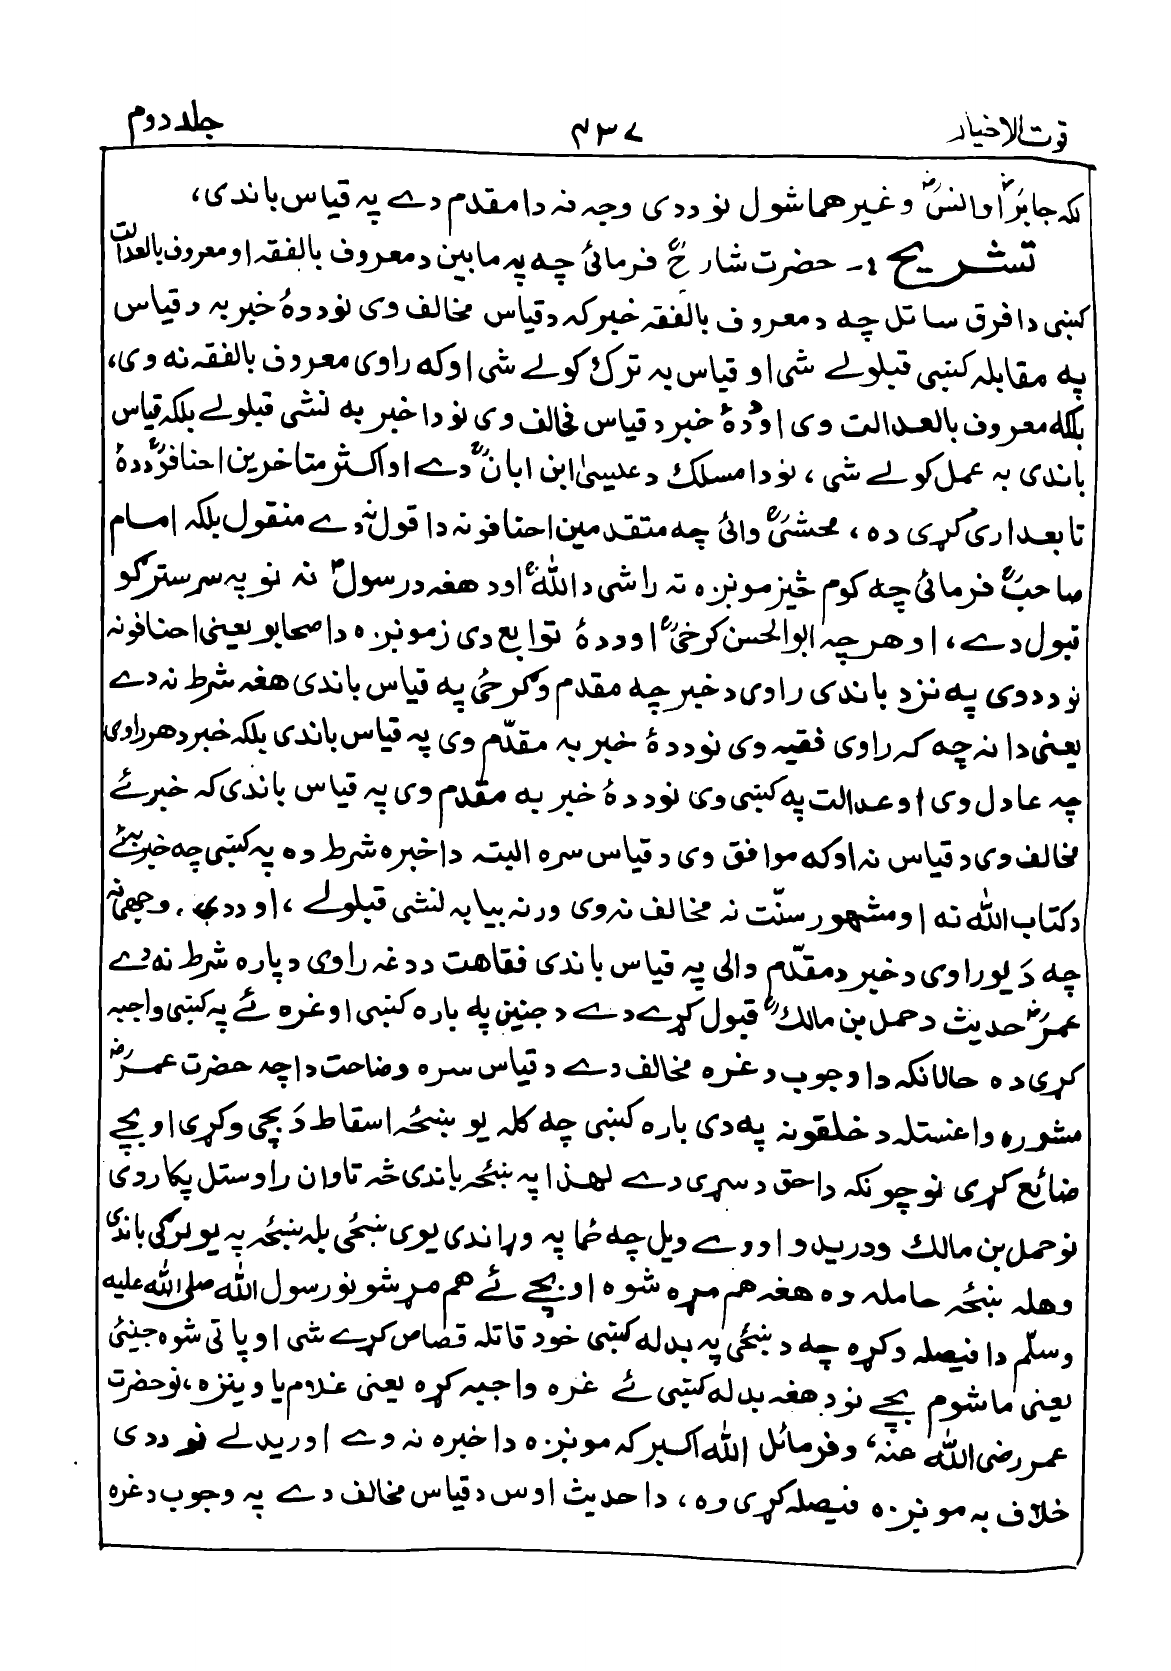 قوت الاخیار ۴۳۷ جلد دوم
لکہ جابرؓ او انسؓ و غیرهما شول نو ددی وجہ نہ دا مقدم دے پہ قیاس باندی،
تشریح :- حضرت شارحؒ فرمائی چہ پہ مابین د معروف بالفقہ او معروف بالعدالت
کښی دا فرق ساتل چہ د معروف بالفقہ خبر کہ د قیاس مخالف وی نو ددۂ خبر بہ د قیاس
پہ مقابلہ کښی قبلولے شی او قیاس بہ ترک کولے شی او کہ راوی معروف بالفقہ نہ وی،
بلکہ معروف بالعدالت وی او دۂ خبر د قیاس مخالف وی نو دا خبر بہ نشی قبلولے بلکہ قیاس
باندی بہ عمل کولے شی، نو دا مسلک د عیسیٰ ابن ابانؒ دے او اکثر متاخرین احنافوؒ ددۂ
تابعداری کړی دہ، محشیؒ وائی چہ متقدمین احنافو نہ دا قول نہ دے منقول بلکہ امام
صاحبؒ فرمائی چہ کوم څیز مونږہ تہ راشی د اللہ او د هغہ د رسولؐ نہ نو پہ سر سترګو
قبول دے، او هرچہ ابوالحسن کرخیؒ او ددۂ توابع دی زمونږہ د اصحابو یعنی احنافو نہ
نو ددوی پہ نزد باندی راوی د خبر چہ مقدم وګرځی پہ قیاس باندی هغہ شرط نہ دے
یعنی دا نہ چہ کہ راوی فقیہ وی نو ددۂ خبر بہ مقدّم وی پہ قیاس باندی بلکہ خبر د هر راوی
چہ عادل وی او عدالت پہ کښی وی نو ددۂ خبر بہ مقدم وی پہ قیاس باندی کہ خبر ئے
مخالف وی د قیاس نہ او کہ موافق وی د قیاس سرہ البتہ دا خبرہ شرط دہ پہ کښی چہ خبر بہ ئے
د کتاب اللہ نہ او مشهور سنّت نہ مخالف نہ وی ورنہ بیا بہ نشی قبلولے، او ددی وجهی نہ
چہ د یو راوی د خبر د مقدّم والی پہ قیاس باندی فقاهت د دغہ راوی د پارہ شرط نہ دے
عمرؓ حدیث د حمل بن مالکؒ قبول کړے دے د جنین پہ بارہ کښی او غرہ ئے پہ کښی واجبہ
کړی دہ حالانکہ دا وجوب د غرہ مخالف دے د قیاس سرہ وضاحت دا چہ حضرت عمرؓ
مشورہ واغستلہ د خلقو نہ پہ دی بارہ کښی چہ کلہ یو ښځہ اسقاط دَ بچی وکړی او بچے
ضائع کړی نو چونکہ دا حق د سړی دے لهذا پہ ښځہ باندی څہ تاوان راوستل پکار دی
نو حمل بن مالک ودرید و او وے ویل چہ ځما پہ وړاندی یوی ښځی بلہ ښځہ پہ یو لرګی باندی
وهلہ ښځہ حاملہ وہ هغہ هم مړہ شوہ او بچے ئے هم مړ شو نو رسول اللہ صلی اللہ علیہ
وسلّم دا فیصلہ وکړہ چہ د ښځی پہ بدلہ کښی خو د قاتلہ قصاص کړے شی او پاتی شوہ جنین
یعنی ماشوم بچے نو د هغہ بدلہ کښی ئے غرہ واجبہ کړہ یعنی غلام یا وینزہ، نو حضرت
عمر رضی اللہ عنہ، وفرمائل اللہ اکبر کہ مونږہ دا خبرہ نہ وے اوریدلے نو ددی
خلاف بہ مونږہ فیصلہ کړی وہ، دا حدیث اوس د قیاس مخالف دے پہ وجوب د غرہ